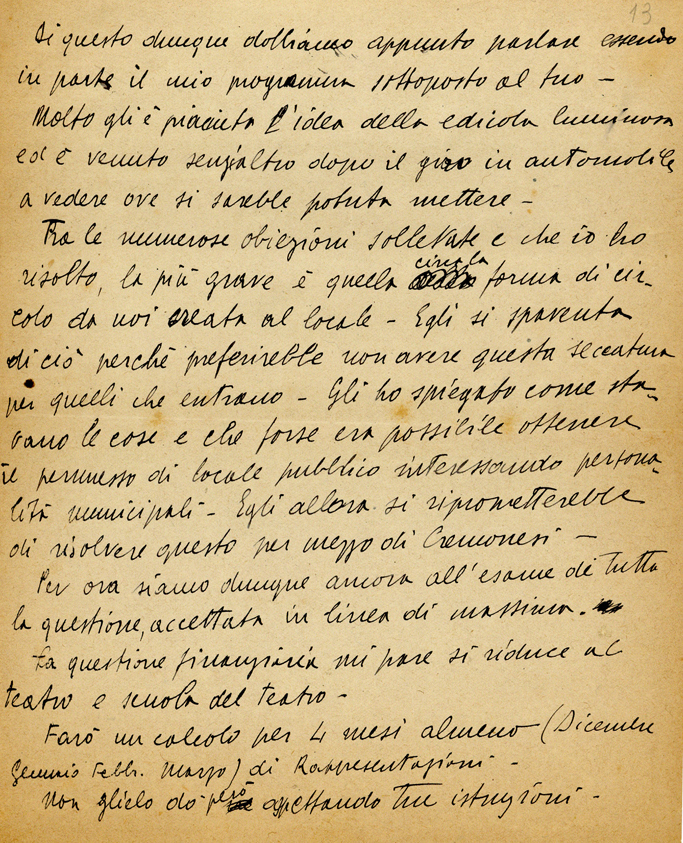 13
Di questo dunque dobbiamo appunto parlare essendo
in parte il mio programma sottoposto al tuo —
Molto gli è piaciuta l'idea della edicola luminosa
ed è venuto senz'altro dopo il giro in automobile
a vedere ove si sarebbe potuta mettere —
Tra le numerose obiezioni sollevate e che io ho
circa la
risolto, la più grave è quella forma di cir-
colo da noi creata al locale — Egli si spaventa
di ciò perchè preferirebbe non avere questa seccatura
per quelli che entrano — Gli ho spiegato come sta-
vano le cose e che forse era possibile ottenere
il permesso di locale pubblico interessando persona-
lità municipali — Egli allora si riprometterebbe
di risolvere questo per mezzo di Cremonesi —
Per ora siamo dunque ancora all'esame di tutta
la questione, accettata in linea di massima.
La questione finanziaria mi pare si riduce al
teatro e scuola del teatro —
Farò un calcolo per 4 mesi almeno (Dicembre
Gennaio Febbr. Marzo) di Rappresentazioni —
Non glielo dò però aspettando tue istruzioni —